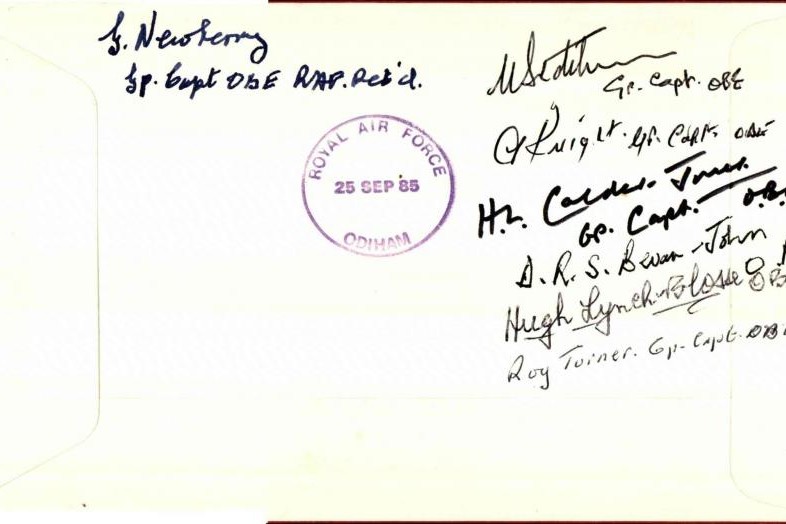 G. Newberry
Gp. Capt OBE RAF. Ret'd.
ROYAL AIR FORCE
25 SEP 85
ODIHAM
Gp. Capt. OBE
Knight. Gp. Capt. OBE
H.L. Calder. Jones.
Gp. Capt. O.B.
D. R. S. Bevan-John
Hugh Lynch-Blosse OB
Roy Turner. Gp. Capt. OBE